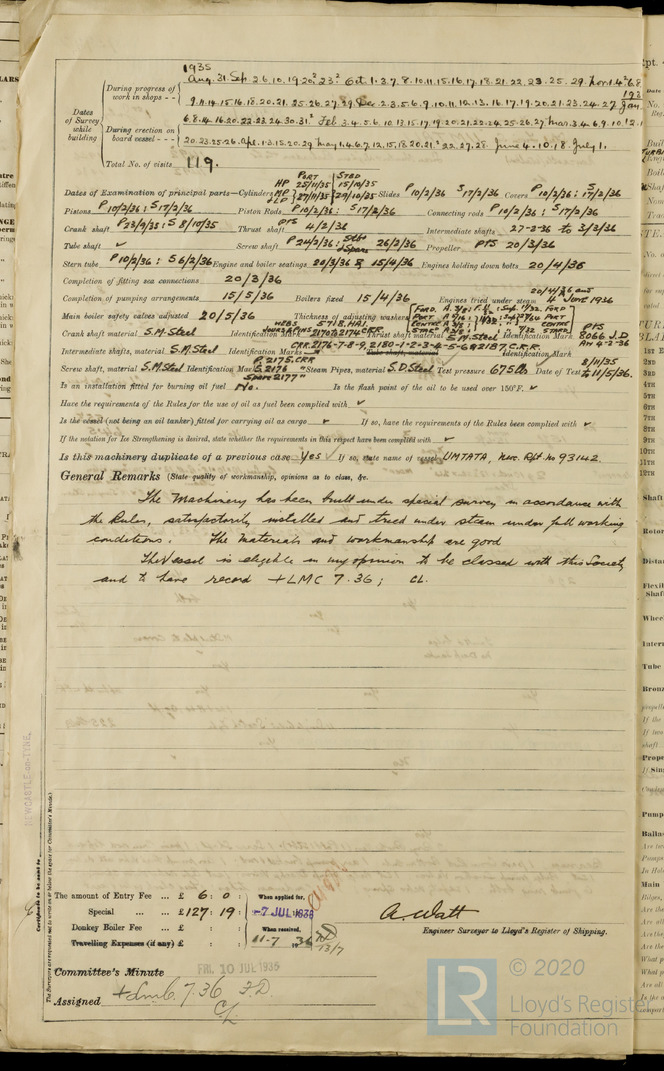 1935
Dates of Survey while building
During progress of work in shops - -
Aug. 31. Sep 2.6.10.19.20.23. Oct. 1.3.7.8.10.11.15.16.17.18.21.22.23.25.29. Nov. 1.4.6.8
9.11.14.15.16.18.20.21.25.26.27.29. Dec. 2.3.5.6.9.10.11.12.13.16.17.19.20.21.23.24.27 Jan
During erection on board vessel - - -
6.8.14.16.20.22.23.24.30.31. Feb 3.4.5.6.10.13.15.17.19.20.21.22.24.25.26.27 Mar. 3.4.6.9.10.12.
20.23.25.26. Apl. 1.3.15.20.29 May 1.4.6.7.12.15.18.20.21.22.27.28. June 4.10.18. July 1.
Total No. of visits 119.
PORT STBD
Dates of Examination of principal parts—Cylinders HP 25/11/35 15/10/35 MP LP 27/11/35 29/10/35 Slides P 10/2/36 S 17/2/36 Covers P 10/2/36; S 17/2/36
Pistons P 10/2/36; S 17/2/36 Piston Rods P 10/2/36; S 17/2/36 Connecting rods P 10/2/36; S 17/2/36
Crank shaft P 23/9/35; S 8/10/35 Thrust shaft P&S 4/2/36 Intermediate shafts 27-2-36 to 3/3/36
Tube shaft ✓ Screw shaft P 24/2/36; Stbd & Spare 26/2/36 Propeller P&S 20/3/36
Stern tube P 10/2/36; S 6/2/36 Engine and boiler seatings 20/3/36 & 15/4/36 Engines holding down bolts 20/4/36
Completion of fitting sea connections 20/3/36
Completion of pumping arrangements 15/5/36 Boilers fixed 15/4/36 Engines tried under steam 20/4/36 and 4 June 1936
Main boiler safety valves adjusted 20/5/36 Thickness of adjusting washers
Crank shaft material S.M. Steel Identification Mark WEBS 5718.HAJ JOURS & PINS 2170 to 2174 CRR Thrust shaft material S.M. Steel Identification Mark P&S 8066 J.D
Intermediate shafts, material S.M. Steel Identification Marks CRR 2176-7-8-9, 2180-1-2-3-4-5-6 & 2187 C.R.R. Tube shaft, material Identification Mark
Screw shaft, material S.M. Steel Identification Mark P 2175.CRR S 2176 " Spare 2177 " Steam Pipes, material S.D. Steel Test pressure 675 lb Date of Test 8/11/35 to 11/5/36.
Is an installation fitted for burning oil fuel No. Is the flash point of the oil to be used over 150°F. ✓
Have the requirements of the Rules for the use of oil as fuel been complied with ✓
Is the vessel (not being an oil tanker) fitted for carrying oil as cargo ✓ If so, have the requirements of the Rules been complied with ✓
If the notation for Ice Strengthening is desired, state whether the requirements in this respect have been complied with ✓
Is this machinery duplicate of a previous case Yes ✓ If so, state name of vessel UMTATA, Nwc. Rpt. No 93142
General Remarks (State quality of workmanship, opinions as to class, &c.
The Machinery has been built under special survey in accordance with
the Rules, satisfactorily installed and tried under steam under full working
conditions. The materials and workmanship are good
The Vessel is eligible in my opinion to be classed with this Society
and to have record +LMC 7.36; CL.
NEWCASTLE-on-TYNE,
Certificate to be sent to
(The Surveyors are requested not to write on or below the space for Committee's Minute.)
The amount of Entry Fee ... £ 6 : 0 : When applied for,
Special ... ... £ 127 : 19 : -7 JUL 1936
Donkey Boiler Fee ... £ : : When received,
Travelling Expenses (if any) £ : : 11-7 1936 13/7
A. Watt
Engineer Surveyor to Lloyd's Register of Shipping.
Committee's Minute FRI. 10 JUL 1936
Assigned +Lmc. 7.36 F.D. CL
LR © 2020
Lloyd's Register
Foundation